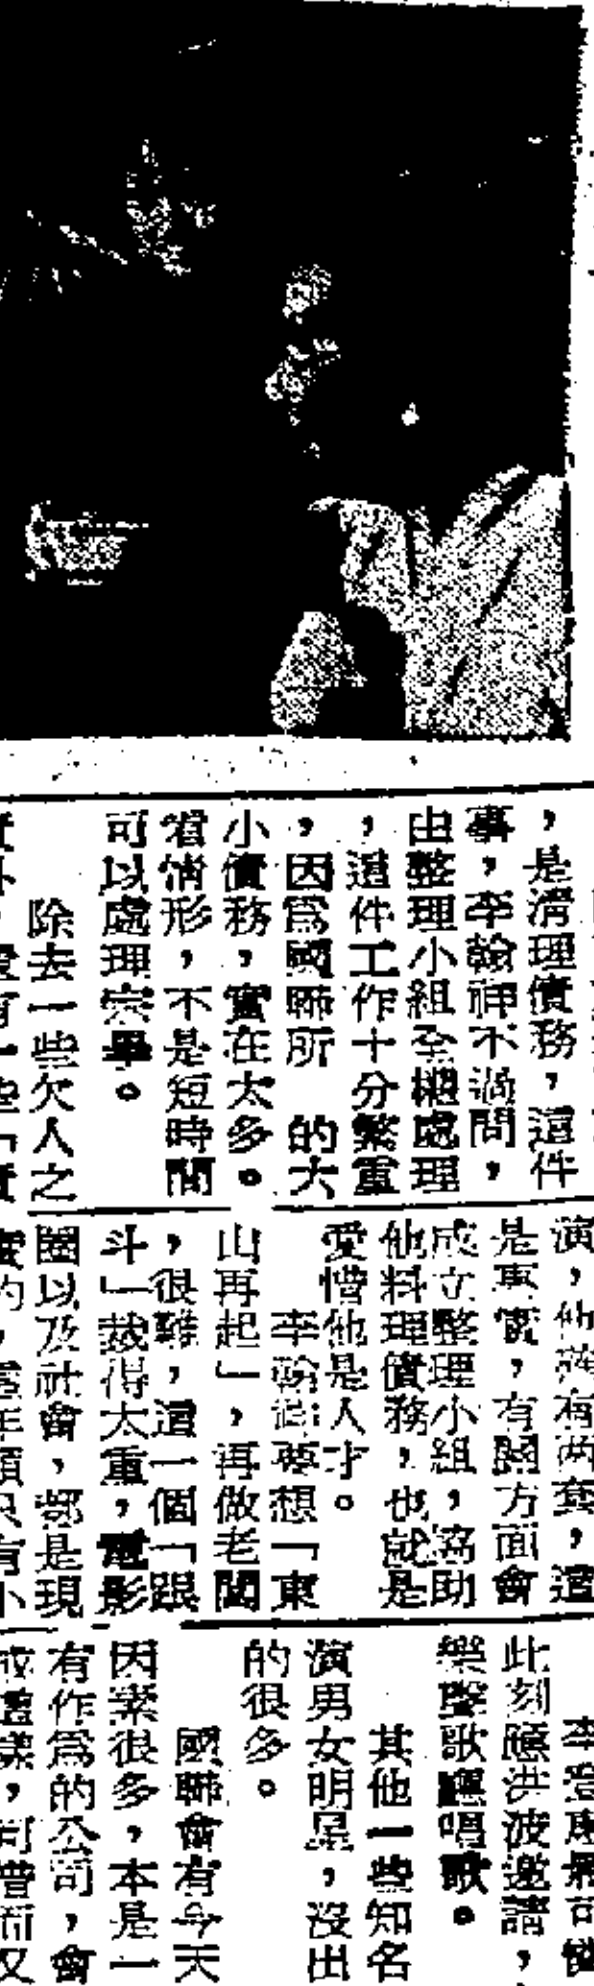 ，是清理債務，這件
事，李翰祥不過問，
由整理小組全權處理
，這件工作十分繁重
，因為國聯所 的大
小債務，實在太多。
看情形，不是短時間
可以處理完畢。
除去一些欠人之
演，他滿有兩套，這
是事實，有關方面會
成立整理小組，協助
他料理債務，也就是
愛惜他是人才。
李翰祥要想「東
山再起」，再做老闆
，很難，這一個「跟
斗」栽得太重，電影
圈以及社會，都是現
此刻應洪波邀請，
樂聲歌廳唱歌。
其他一些知名
演男女明星，沒出
的很多。
國聯會有今天
因素很多，本是一
有作為的公司，會